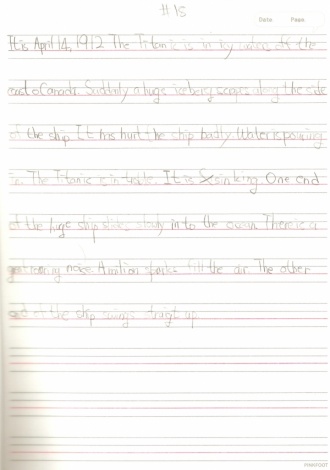 # 18
Date Page
It is April 14, 1912. The Titanic is in icy waters off the
coast of Canada. Suddnly a huge iceberg scrapes along the side
of the ship. It has hurt the ship badly. Water is pouring
in. The Titanic is in trouble. It is sinking. One end
of the huge ship slides slowly in to the ocean. There is a
great roaring noise. A million sparks fill the air. The other
end of the ship swings straigt up.